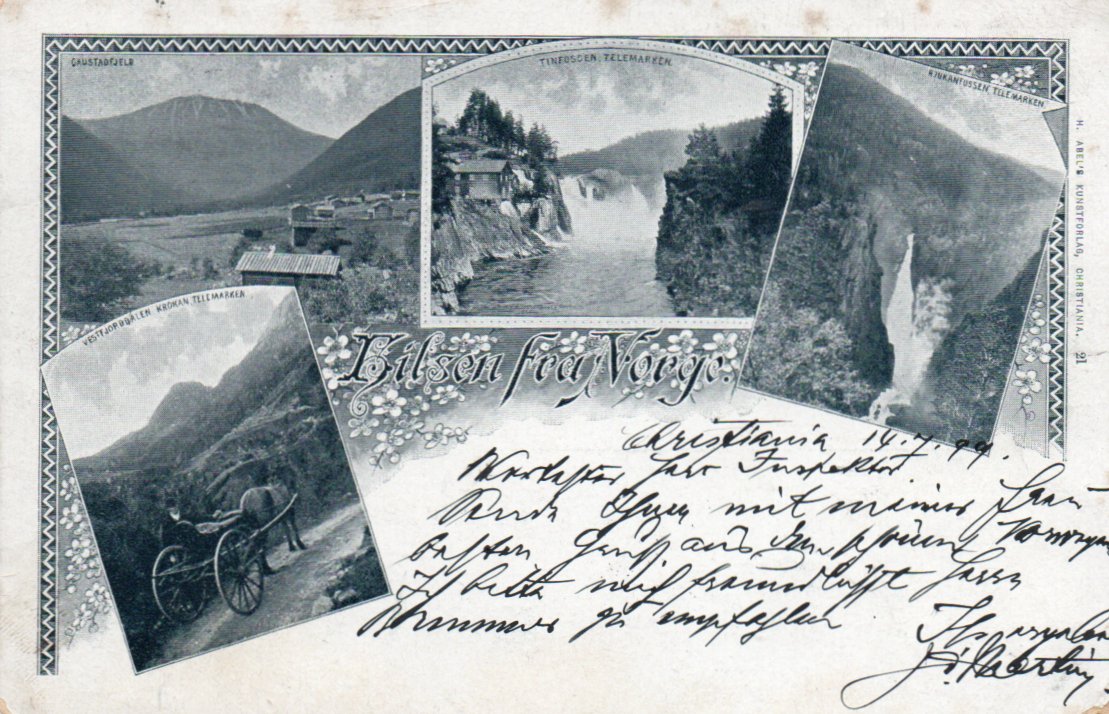 GAUSTADFJELD
TINFOSSEN, TELEMARKEN.
RJUKANFOSSEN, TELEMARKEN
H. ABEL'S KUNSTFORLAG, CHRISTIANIA. 21
VESTFJORDDALEN KROKAN, TELEMARKEN
Hilsen fra Norge.
Christiania 14.7.99.
Herr Inspektor
Sende Ihnen mit meiner Frau
besten Gruß aus dem schönen Norwegen
Ich bitte mich freundlichst Herrn
zu empfehlen